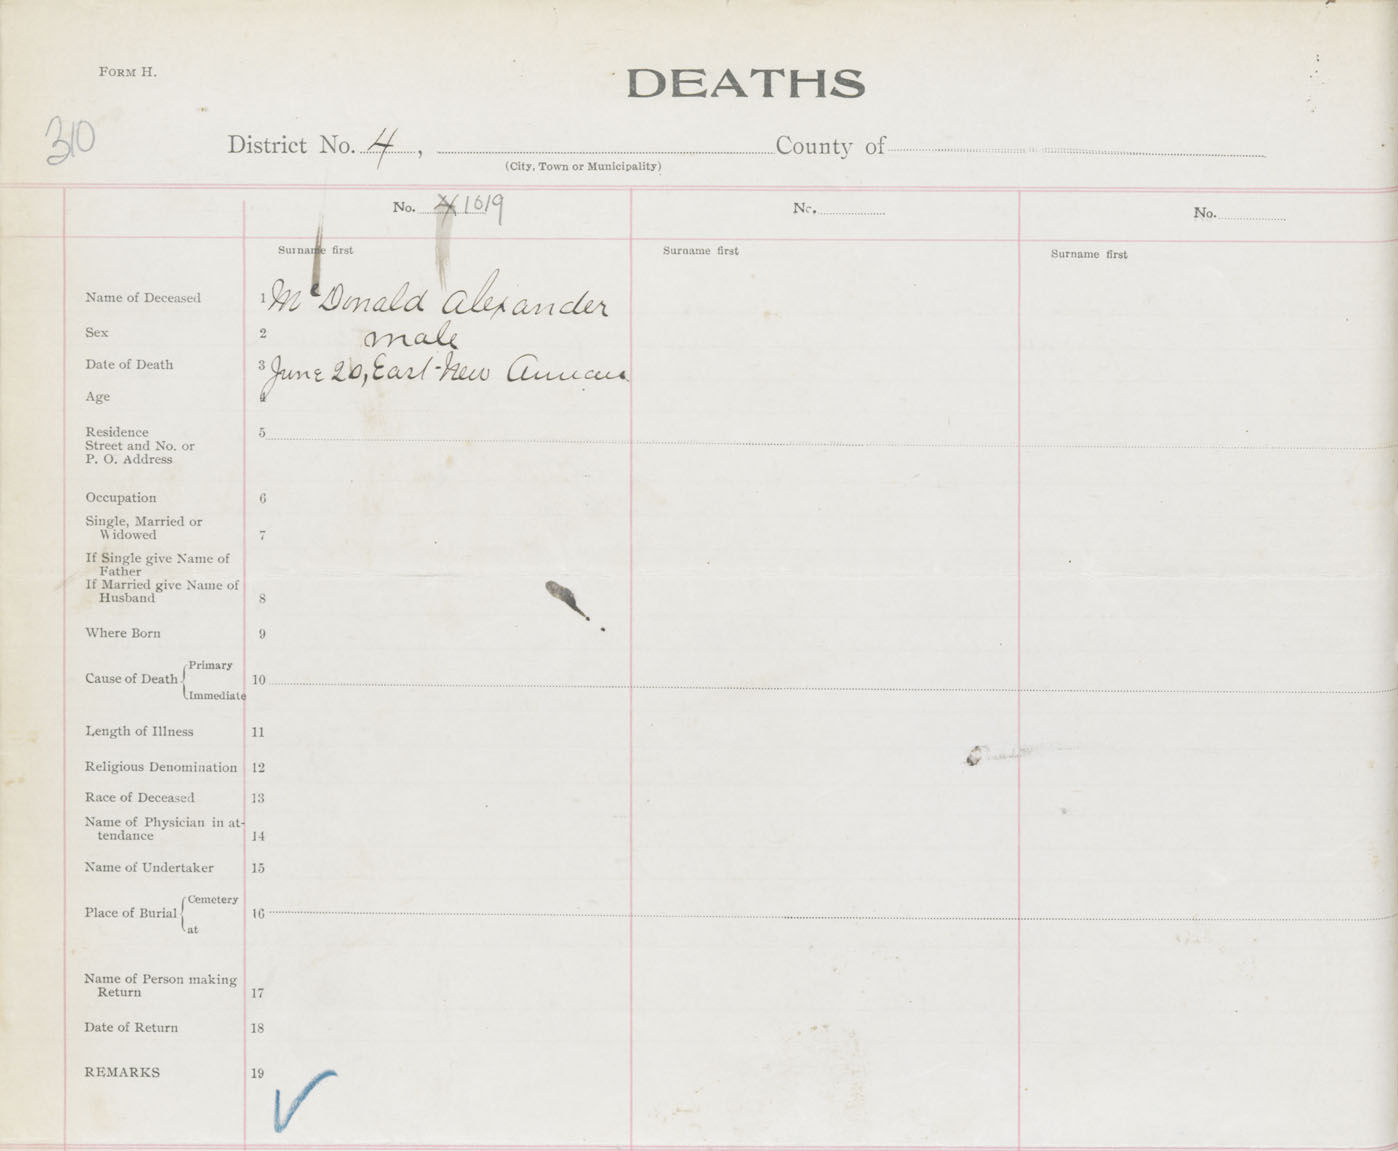 FORM H.
DEATHS
310
District No. 4, County of
(City, Town or Municipality)
No. 1019 No. No.
Surname first Surname first Surname first
Name of Deceased 1 McDonald Alexander
Sex 2 male
Date of Death 3 June 20, East New Annan
Age 4
Residence
Street and No. or 5
P. O. Address
Occupation 6
Single, Married or
Widowed 7
If Single give Name of
Father
If Married give Name of
Husband 8
Where Born 9
Primary
Cause of Death 10
Immediate
Length of Illness 11
Religious Denomination 12
Race of Deceased 13
Name of Physician in at-
tendance 14
Name of Undertaker 15
Cemetery
Place of Burial 16
at
Name of Person making
Return 17
Date of Return 18
REMARKS 19